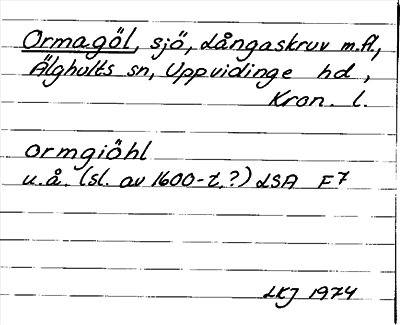 Ormagöl, sjö, Långaskruv m.fl.,
Älghults sn, Uppvidinge hd,
Kron. l.
ormgiöhl
u.å. (sl. av 1600-t.?) LSA F7
LKJ 1974